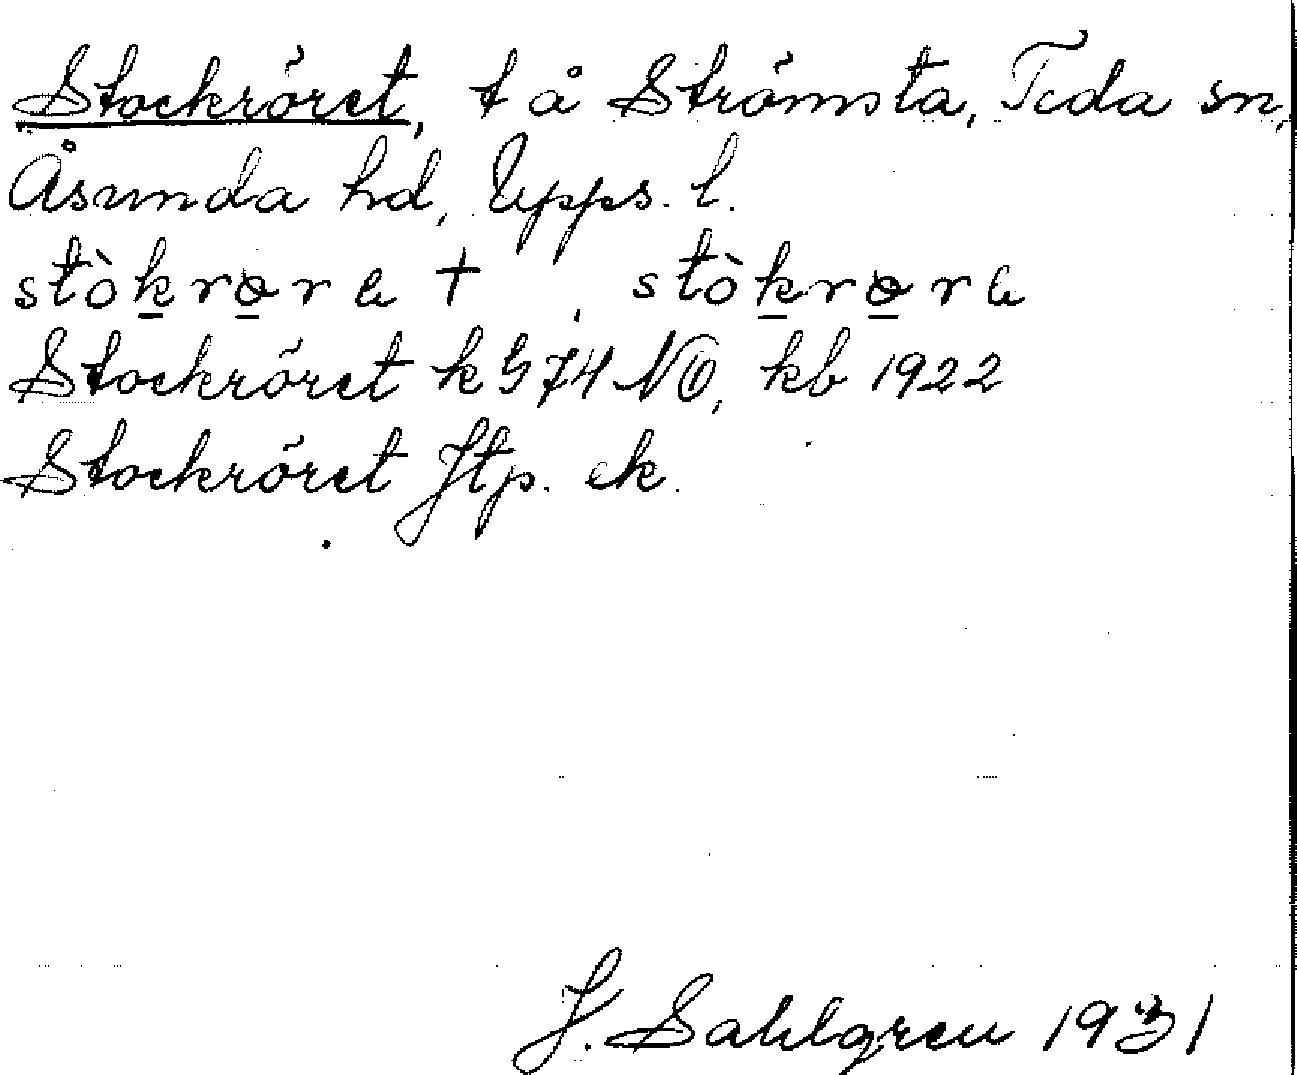 Stockröret, t å Strömsta, Teda sn,
Åsunda hd, Upps. l.
stòkrøra †, stòkrøra
Stockröret k G 74 NÖ, kb 1922
Stockröret Jtp. ek.
J. Sahlgren 1931